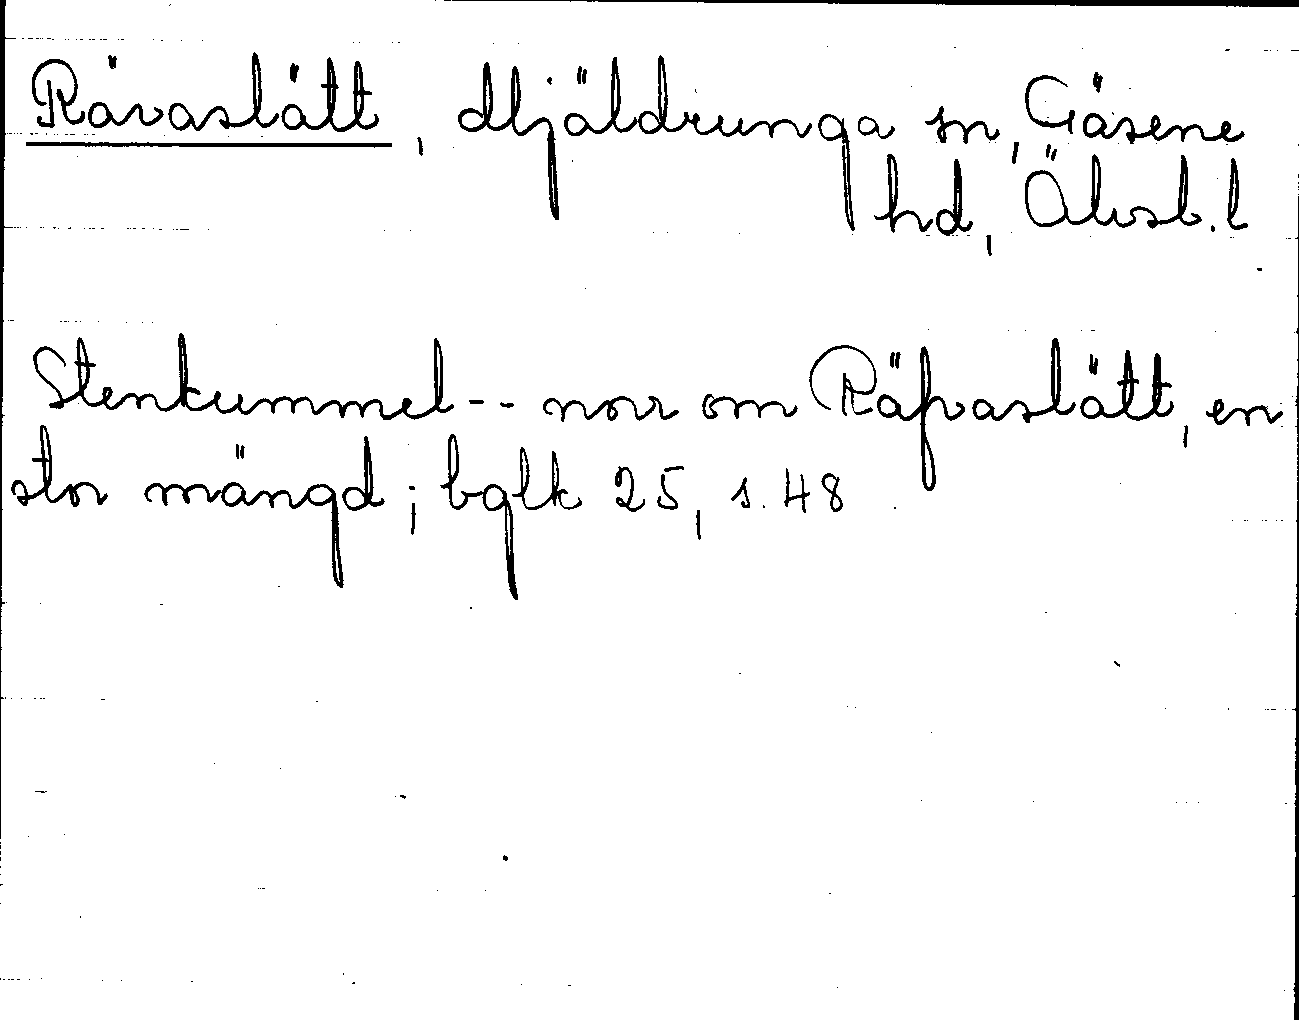 Rävaslätt, Mjäldrunga sn, Gäsene
hd, Älvsb. l
Stenkummel -- norr om Räfvaslätt, en
stor mängd; bglk 25, s. 48